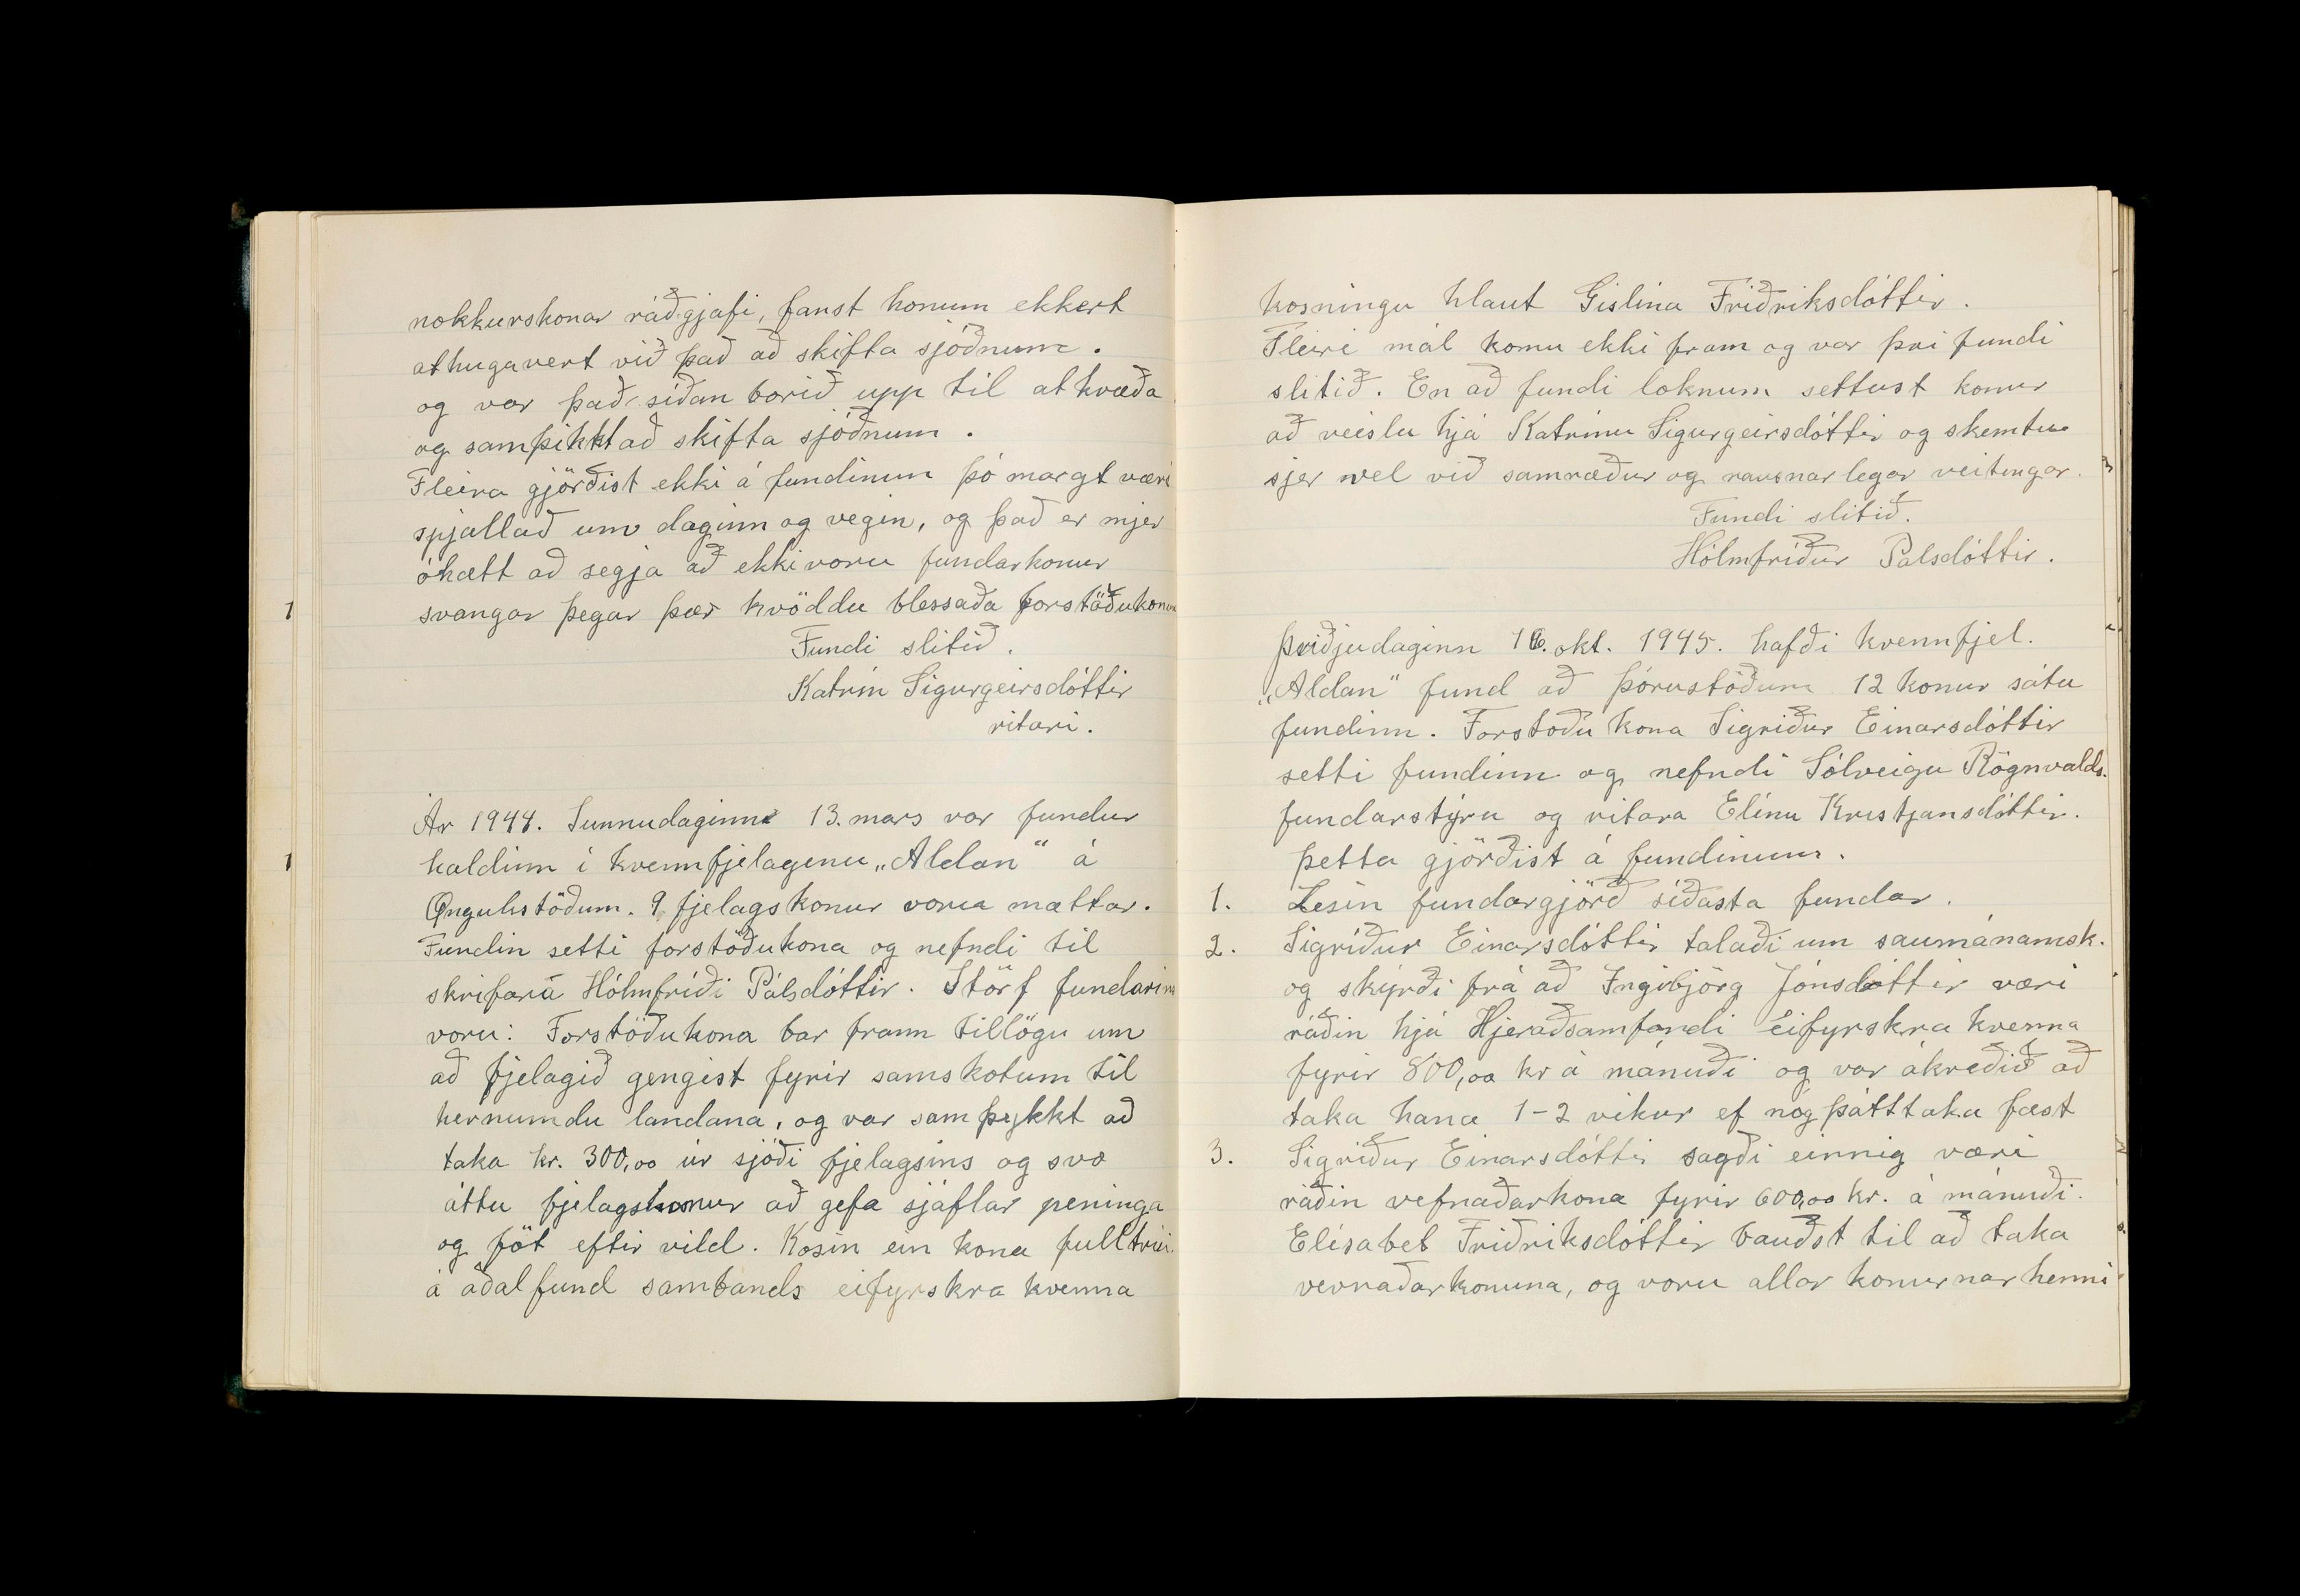 nokkurskonar ráðgjafi, fanst honum ekkert
athugavert við það að skifta sjóðnum.
og var það síðan borið upp til atkvæða
og samþikkt að skifta sjóðnum.
Fleira gjörðist ekki á fundinum þó margt væri
spjallað um daginn og vegin, og það er mjer
óhætt að segja að ekki voru fundarkonur
svangar þegar þær kvöddu blessaða forstöðukonu
Fundi slitið.
Katrín Sigurgeirsdóttir
ritari.
Ár 1944. Sunnudaginn 13. mars var fundur
haldinn í kvennfjelaginu „Aldan" á
Öngulstöðum. 9 fjelagskonur voru mættar.
Fundin setti forstöðukona og nefndi til
skrifara Hólmfríði Pálsdóttir. Störf fundarins
voru: Forstöðukona bar framm tillögu um
að fjelagið gengist fyrir samskotum til
hernumdu landana, og var samþykkt að
taka kr. 300,00 úr sjóði fjelagsins og svo
áttu fjelagskonur að gefa sjáflar peninga
og föt eftir vild. Kosin ein kona fulltrúi
á aðalfund sambands eifyrskra kvenna
kosningu hlaut Gislína Friðriksdóttir.
Fleiri mál komu ekki fram og var því fundi
slitið. En að fundi loknum settust konur
að veislu hjá Katrínu Sigurgeirsdóttir og skemtu
sjer vel við samræður og rausnarlegar veitingar.
Fundi slitið.
Hólmfríður Pálsdóttir.
Þriðjudaginn 16. okt. 1945. hafði kvennfjel.
„Aldan" fund að Þórustöðum 12 konur sátu
fundinn. Forstöðukona Sigríður Einarsdóttir
setti fundinn og nefndi Sólveigu Rögnvalds.
fundarstýru og ritara Elínu Kristjansdóttir.
Þetta gjörðist á fundinum.
1. Lesin fundargjörð síðasta fundar.
2. Sigríður Einarsdóttir talaði um saumánamsk.
og skýrði frá að Ingibjörg Jónsdóttir væri
ráðin hjá Hjeraðsamfandi eifyrskra kvenna
fyrir 800,00 kr á mánuði og var ákreðið að
taka hana 1-2 vikur ef nóg þátttaka fæst
3. Sigríður Einarsdóttir sagði einnig væri
ráðin vefnaðarkona fyrir 600,00 kr. á mánuði.
Elísabet Friðriksdóttir bauðst til að taka
vevnaðarkonuna, og voru allar konurnar henni